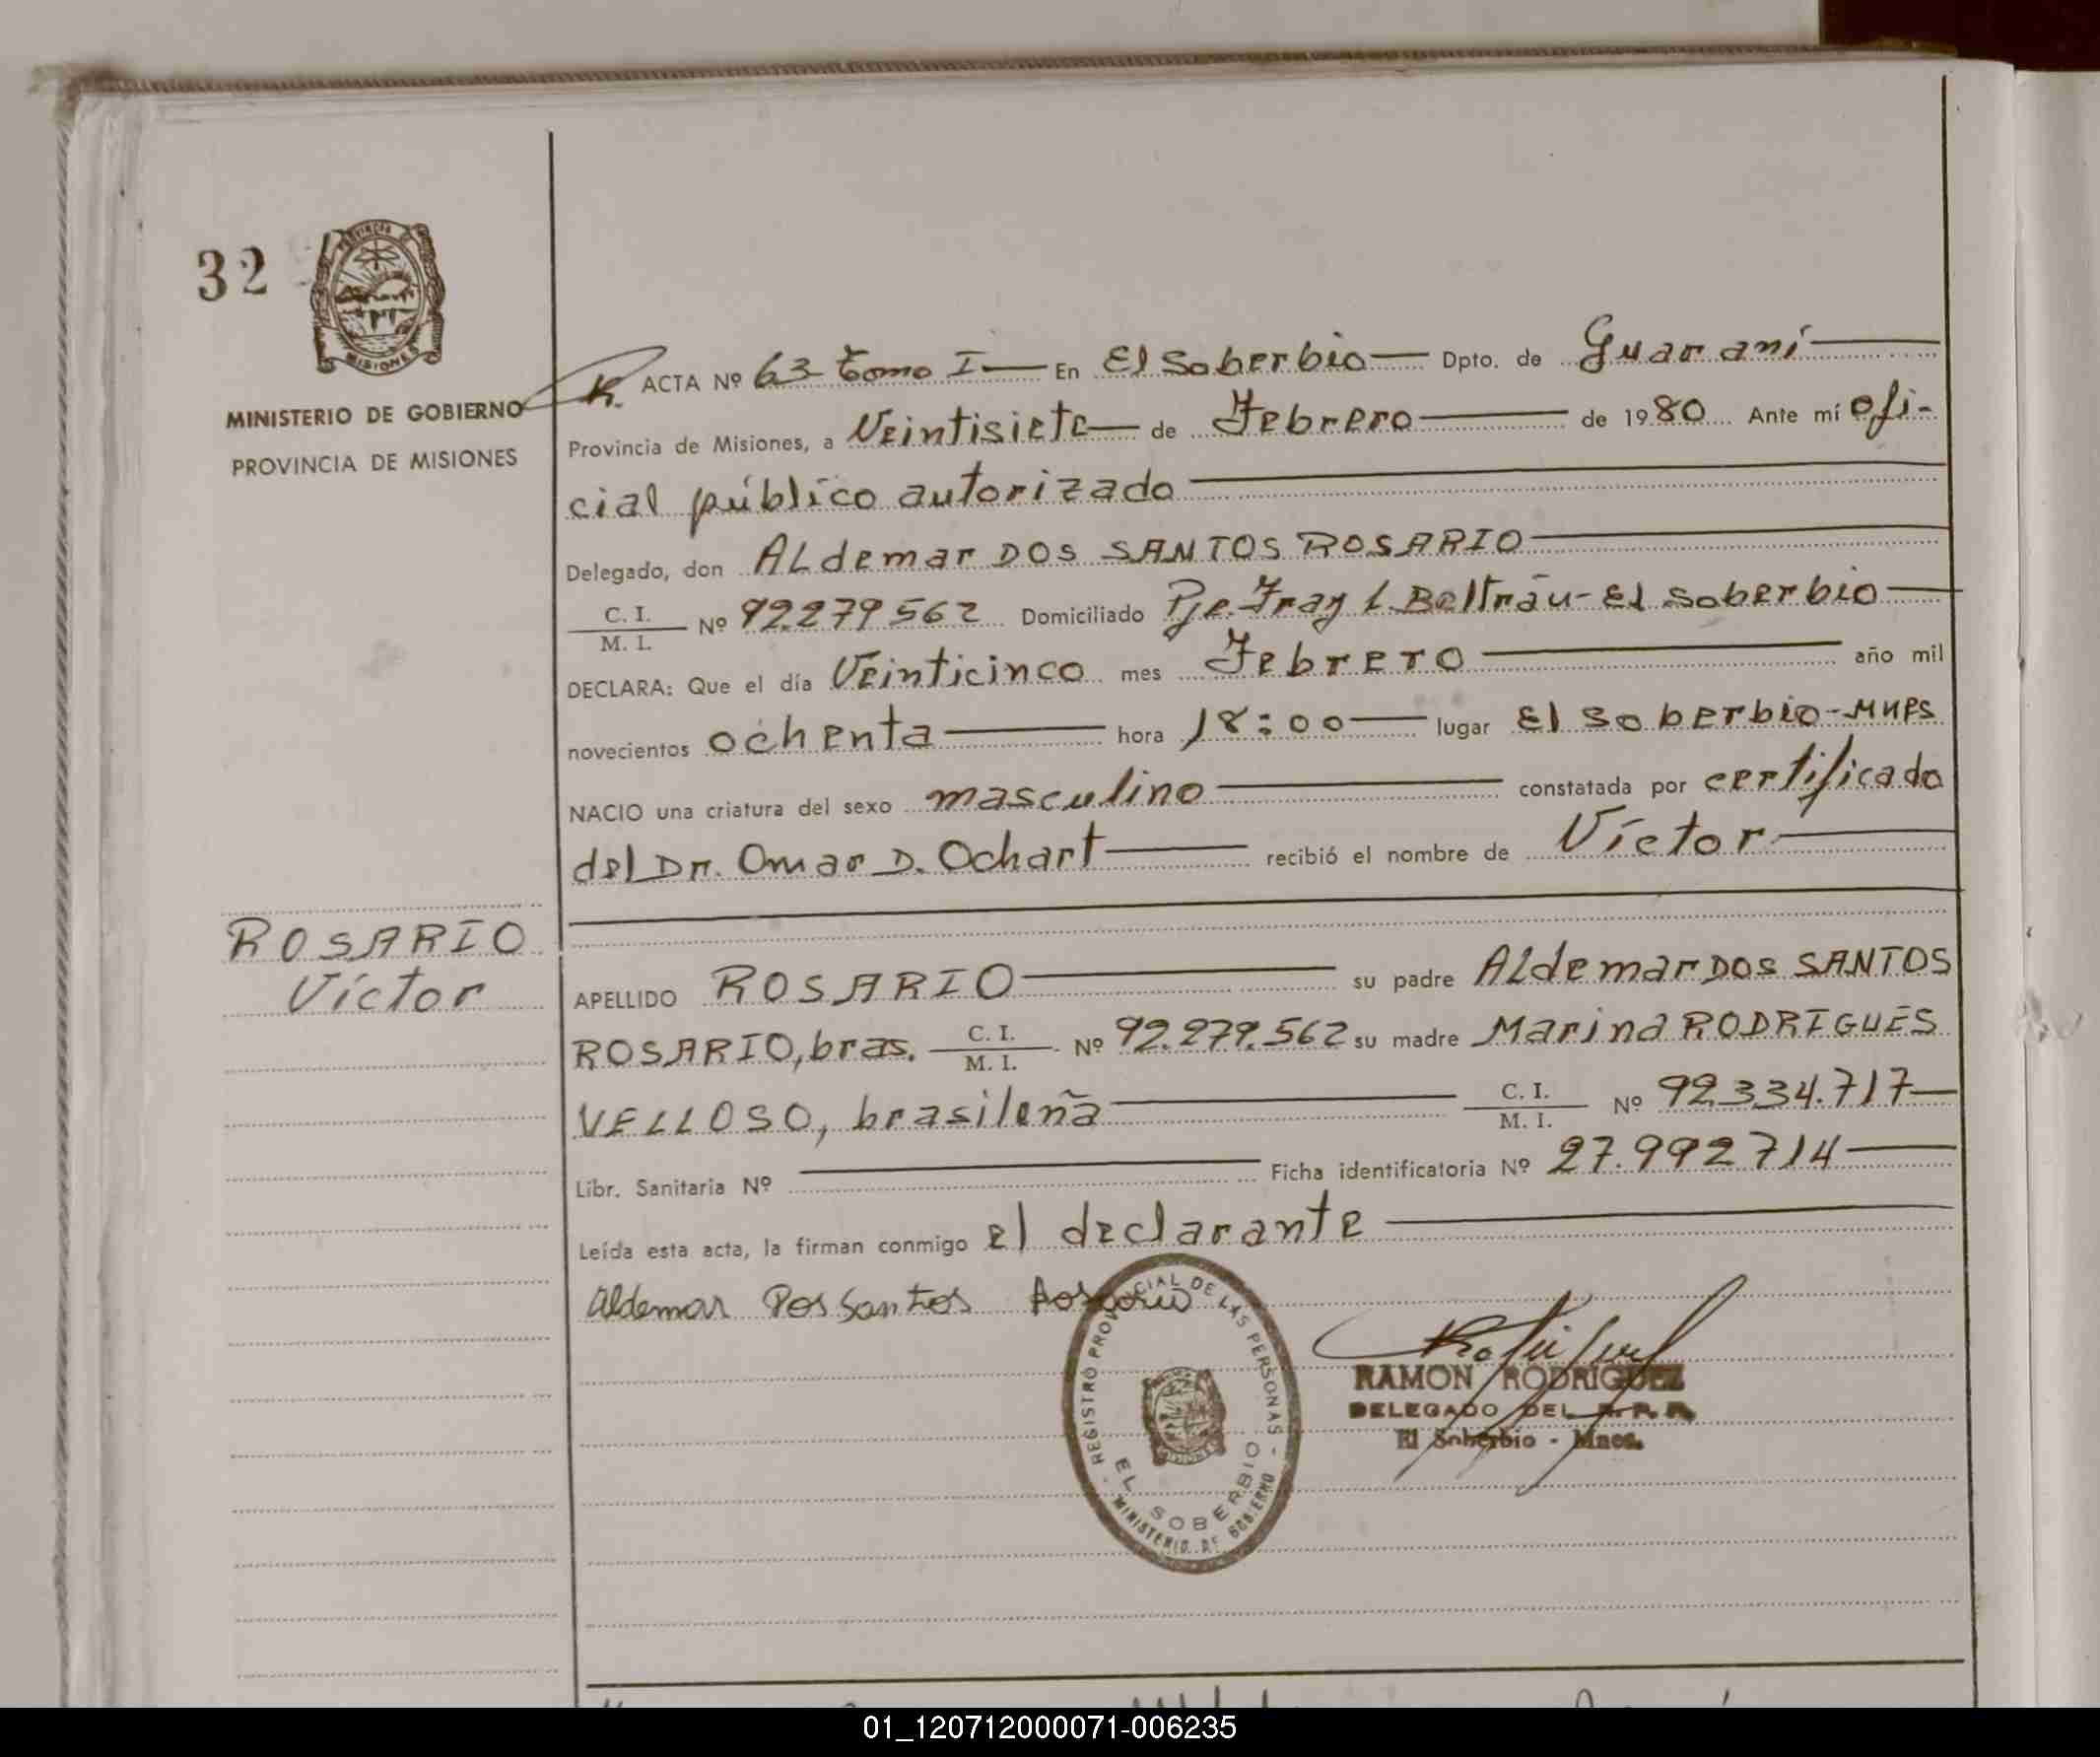 32
PROVINCIA DE
MISIONES
MINISTERIO DE GOBIERNO
PROVINCIA DE MISIONES
ROSARIO
Víctor
R. ACTA Nº 63 Tomo I — En El Soberbio — Dpto. de Guaraní —
Provincia de Misiones, a Veintisiete — de Febrero — de 1980 Ante mí ofi-
cial público autorizado —
Delegado, don ALdemar DOS SANTOS ROSARIO —
C. I. / M. I. Nº 92.279562 Domiciliado Pje. Fray L. Beltrán - El Soberbio —
DECLARA: Que el día Veinticinco mes Febrero — año mil
novecientos ochenta — hora 18:00 — lugar El Soberbio - Mnes
NACIO una criatura del sexo masculino — constatada por certificado
del Dr. Omar D. Ochart — recibió el nombre de Víctor —
APELLIDO ROSARIO — su padre ALdemar DOS SANTOS
ROSARIO, bras. C. I. / M. I. Nº 92.279.562 su madre Marina RODRIGUÉS
VELLOSO, brasileña — C. I. / M. I. Nº 92.334.717 —
Libr. Sanitaria Nº — Ficha identificatoria Nº 27.992714 —
Leída esta acta, la firman conmigo el declarante —
Aldemar Dos Santos Rosario
REGISTRO PROVINCIAL DE LAS PERSONAS -
EL SOBERBIO
MINISTERIO DE GOBIERNO
RAMON RODRIGUEZ
DELEGADO DEL R. P. P.
El Soberbio - Mnes.
01_120712000071-006235